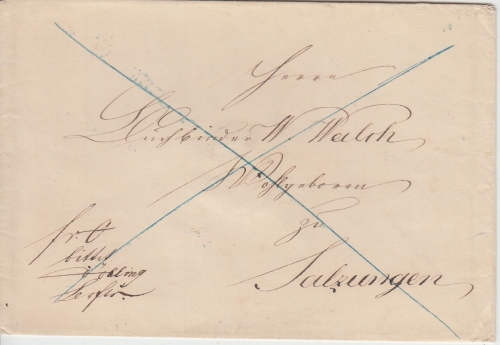 Herrn
Buchbinder W. Walch
Wohlgeboren
zu
Salzungen
fr. O
bittet